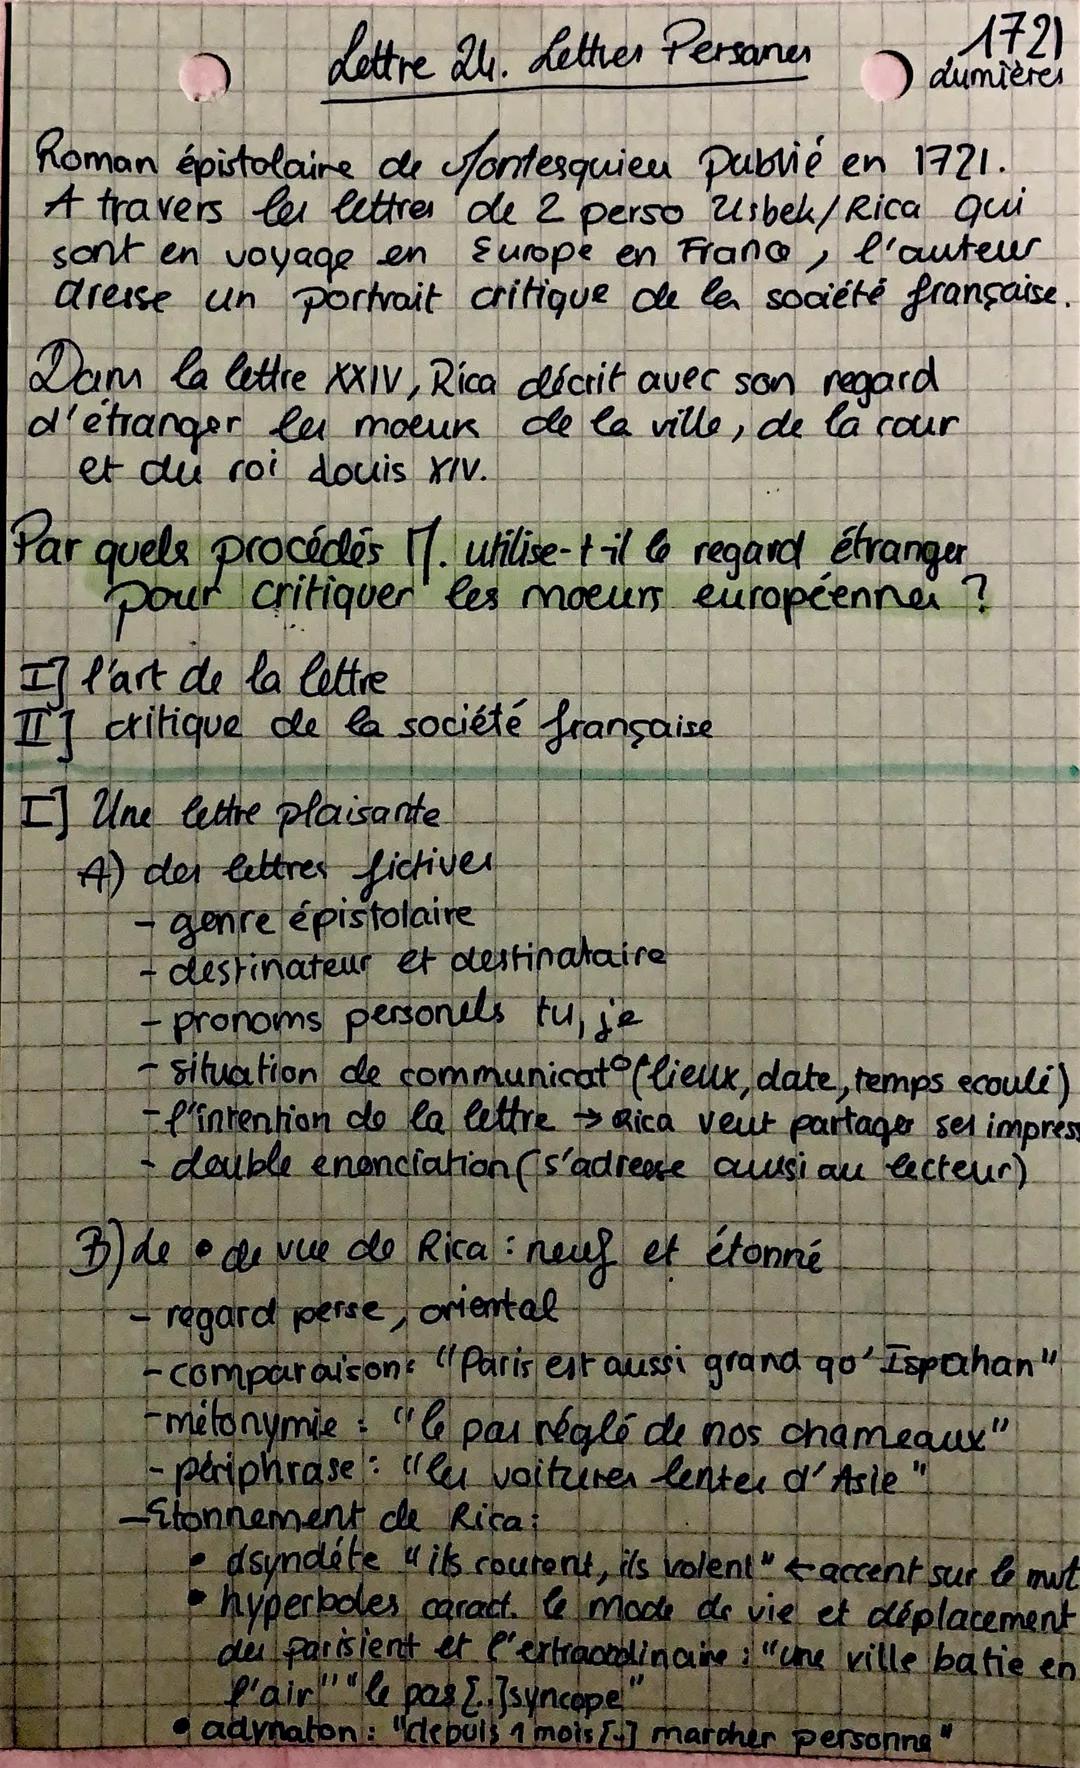 Lettre 24. Lettres Persanes
1721
Lumières
Roman épistolaire de Montesquieu publié en 1721.
A travers les lettres de 2 perso Usbek/Rica qui
sont en voyage en Europe en France, l'auteur
dresse un portrait critique de la société française.
Dans la lettre XXIV, Rica décrit avec son regard
d'étranger les moeurs de la ville, de la cour
et du roi Louis XIV.
Par quels procédés M. utilise-t-il le regard étranger
pour critiquer les moeurs européennes ?
I] l'art de la lettre
II] critique de la société française
I] Une lettre plaisante
A) des lettres fictives
- genre épistolaire
- destinateur et destinataire
- pronoms personels tu, je
- situation de communicat° (lieux, date, temps ecoulé)
- l'intention de la lettre → Rica veut partager ses impress
- double enonciation (s'adresse aussi au lecteur)
B) de • de vue de Rica : neuf et étonné
- regard perse, oriental
- comparaison : "Paris est aussi grand qu'Ispahan"
- métonymie : "le pas réglé de nos chameaux"
- périphrase : "les voitures lentes d'Asie"
- Etonnement de Rica :
• asyndéte "ils courent, ils volent" ← accent sur le mvt
• hyperboles caract. le mode de vie et déplacement
des parisient et l'extraordinaire : "une ville batie en
l'air" "le pas [..] syncope"
• adynaton : "depuis 1 mois [..] marcher personne"